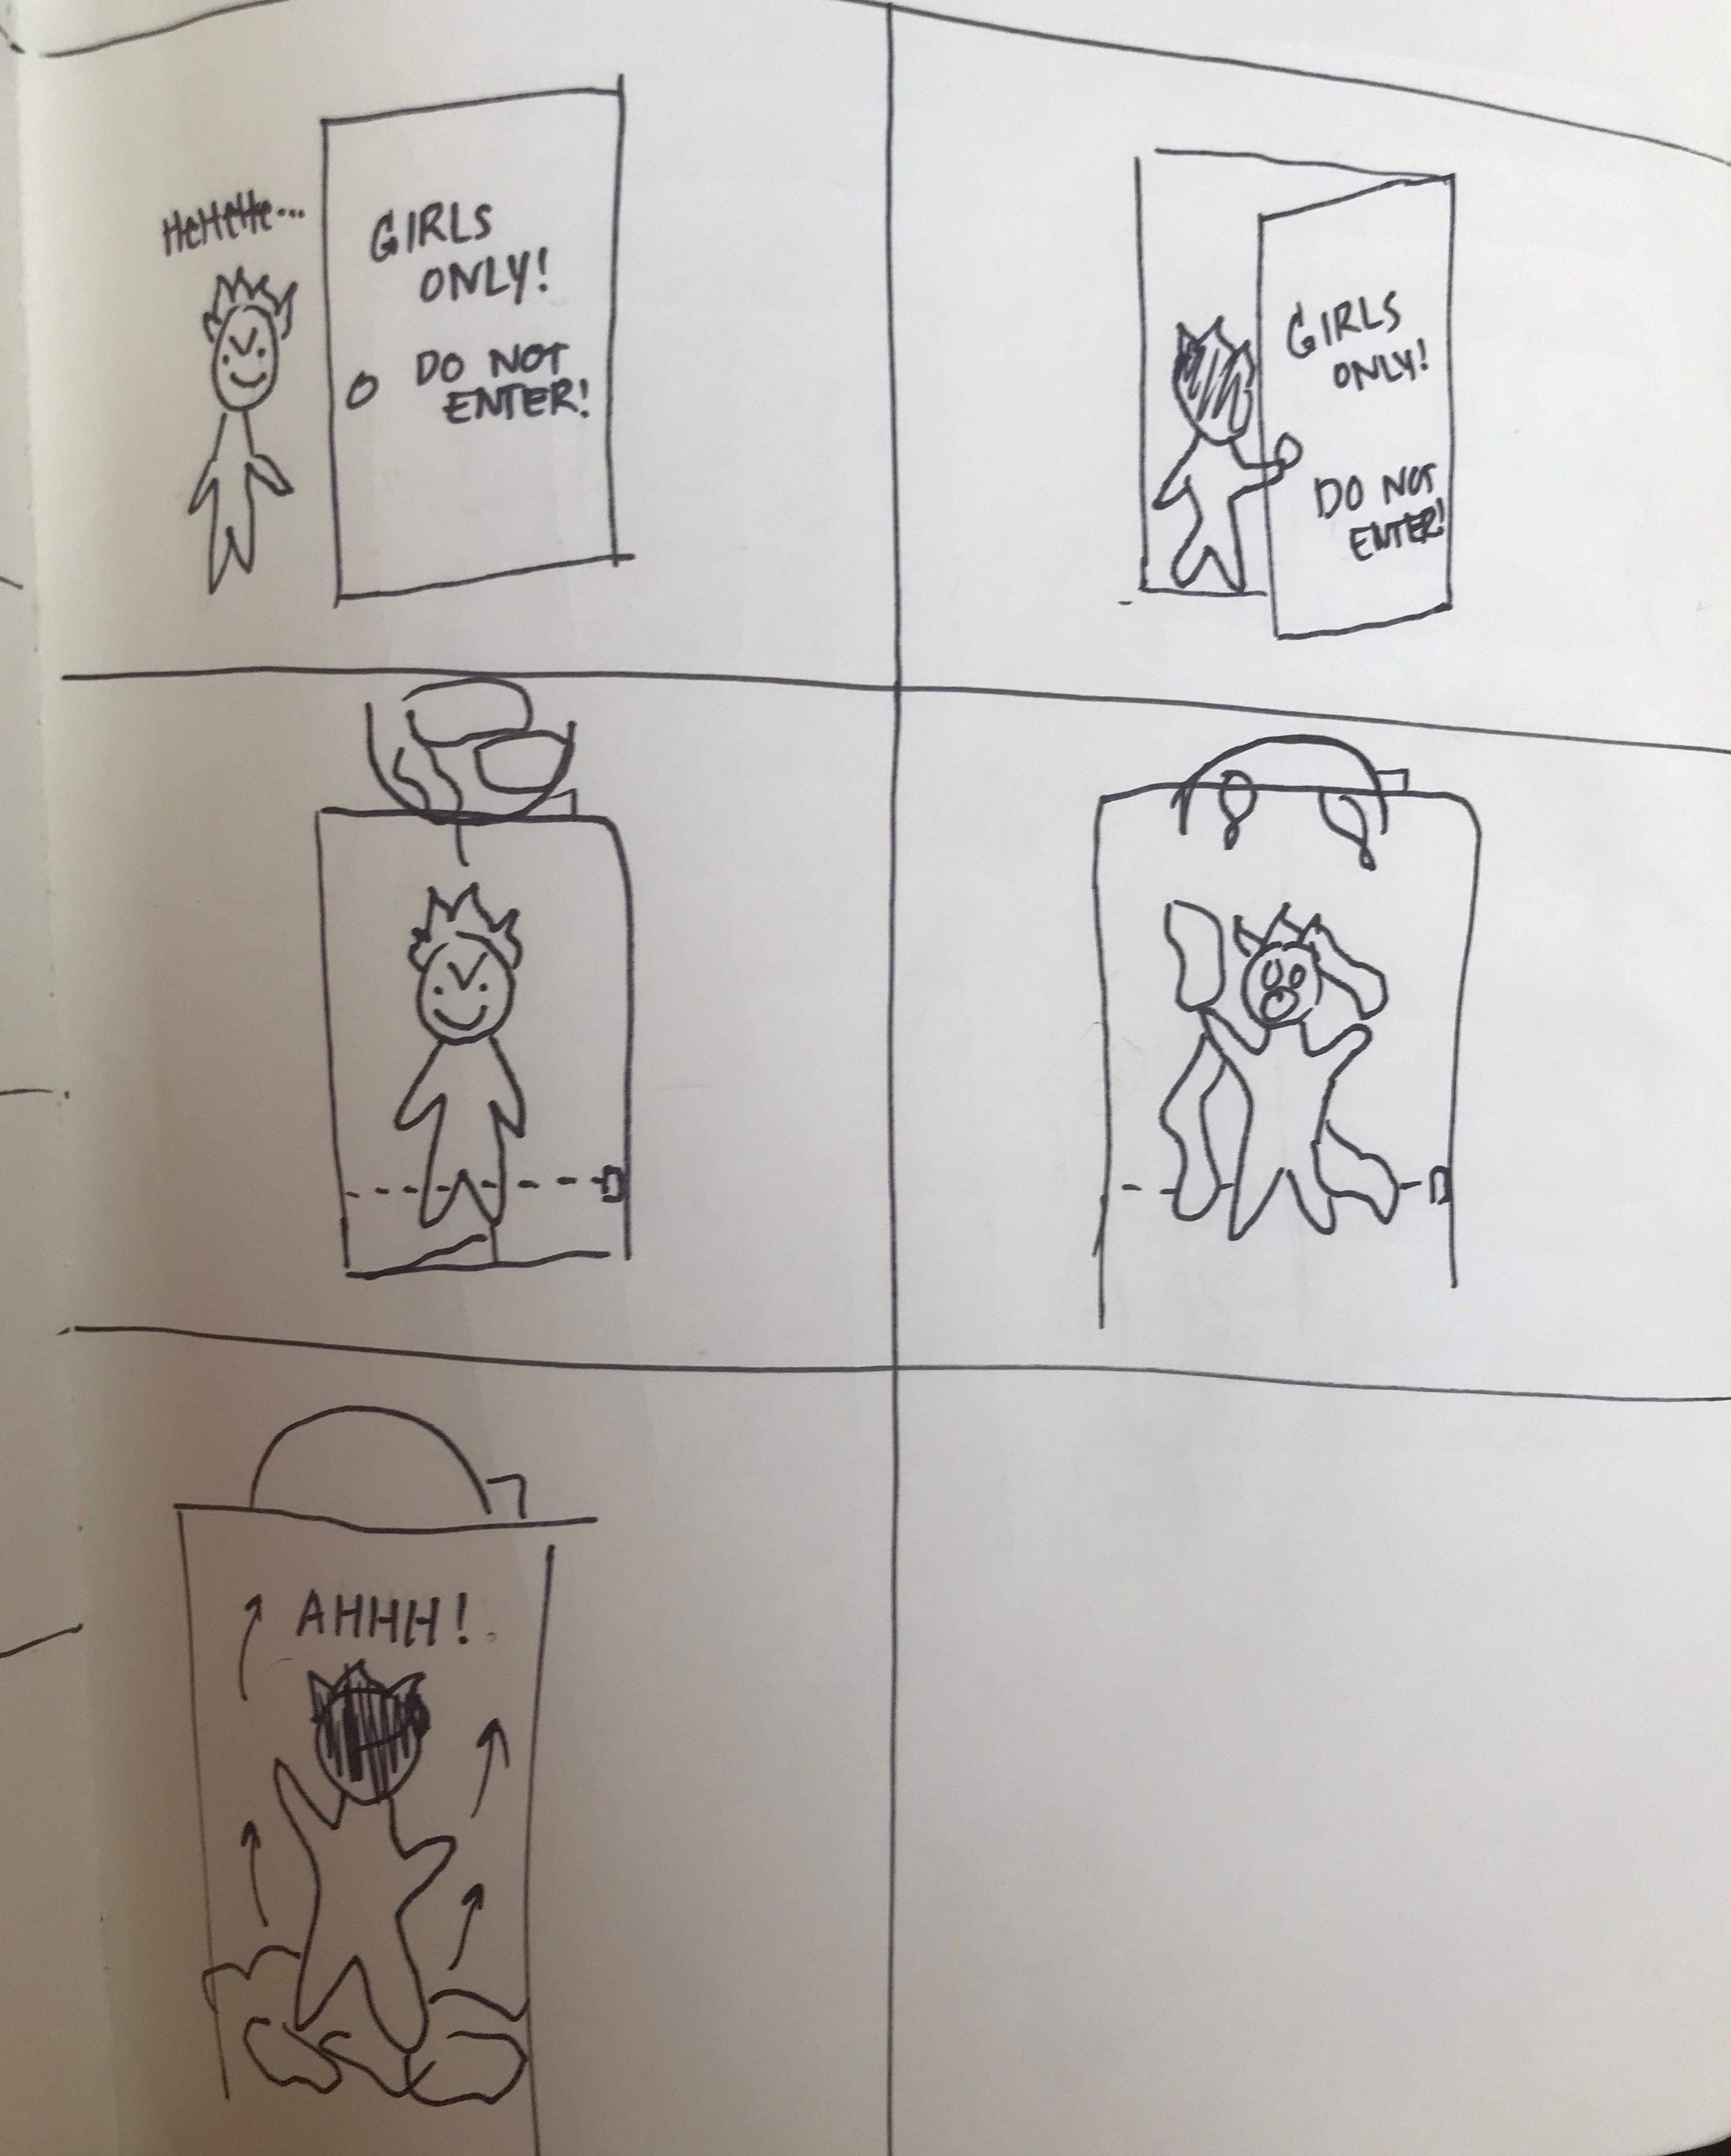 HeHeHe...
GIRLS
ONLY!
DO NOT
ENTER!
GIRLS
ONLY!
DO NOT
ENTER!
AHHH!